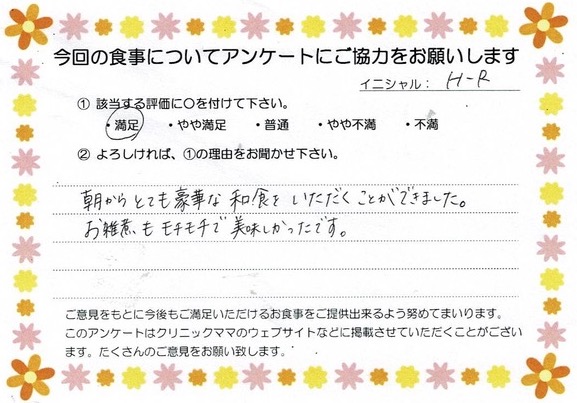 今回の食事についてアンケートにご協力をお願いします
イニシャル： H-R
① 該当する評価に〇を付けて下さい。
・満足 ・やや満足 ・普通 ・やや不満 ・不満
② よろしければ、①の理由をお聞かせ下さい。
朝からとても豪華な和食をいただくことができました。
お雑煮もモチモチで美味しかったです。
ご意見をもとに今後もご満足いただけるお食事をご提供出来るよう努めてまいります。
このアンケートはクリニックママのウェブサイトなどに掲載させていただくことがござい
ます。たくさんのご意見をお願い致します。